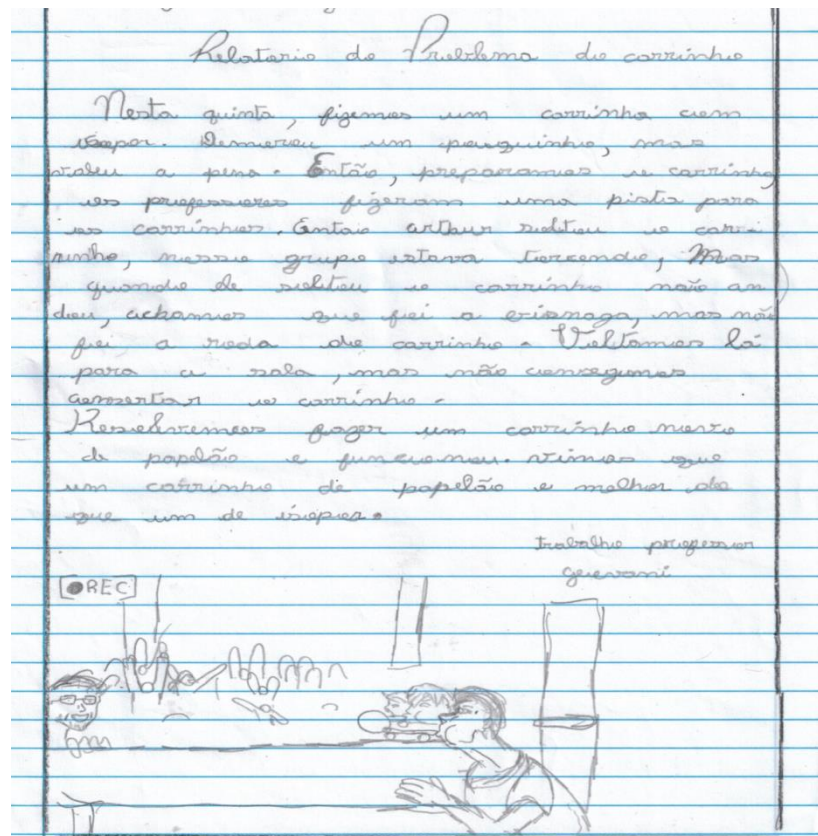 Relatorio do Problema do carrinho
Nesta quinta, fizemos um carrinho com
isopor. Demorou um pouquinho, mas
valeu a pena. Então, preparamos o carrinho,
os professores fizeram uma pista para
os carrinhos. Entao arthur soltou o car-
rinho, nosso grupo estava torcendo, Mas
quando ele soltou o carrinho não an
dou, achamos que foi a bisnaga, mas não
foi a roda do carrinho. Voltamos lá
para a sala, mas não conseguimos
consertar o carrinho.
Resolvemos fazer um carrinho novo
de papelão e funcionou. vimos que
um carrinho de papelão e melhor do
que um de isopor.
trabalho professor
geovani
REC